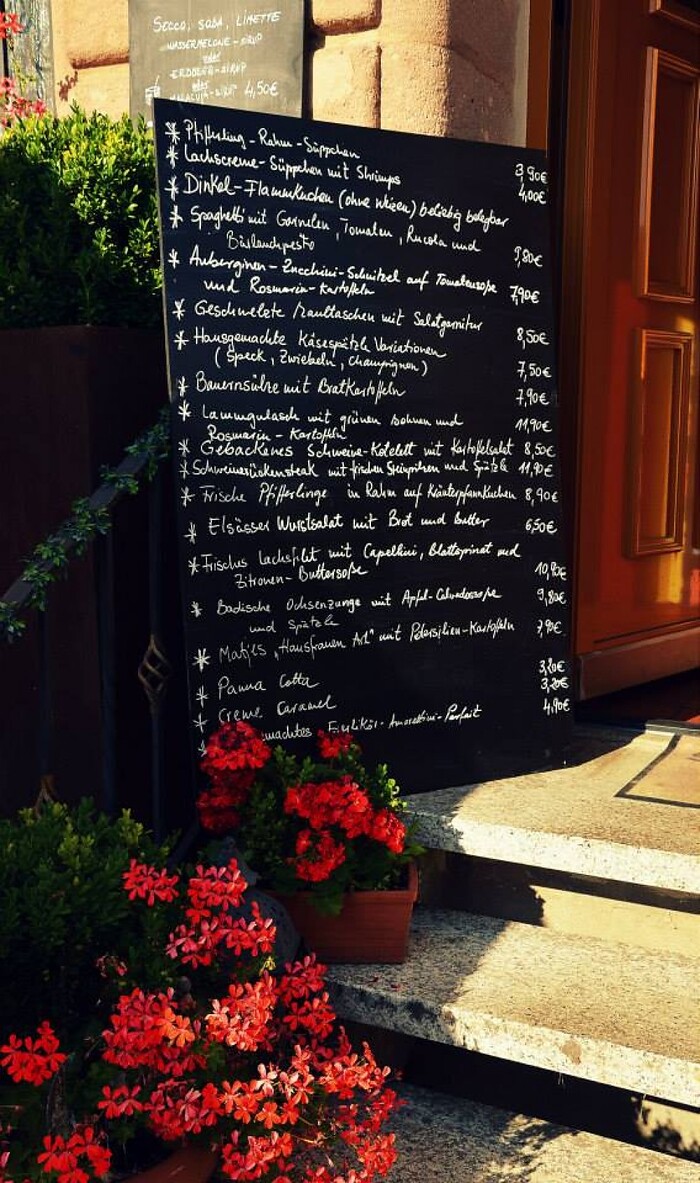 Secco, Soda, Limette
Wassermelone-Sirup
oder
Erdbeer-Sirup
oder
4,50€
* Pfifferling-Rahm-Süppchen 3,90€
* Lachscreme-Süppchen mit Shrimps 4,00€
* Dinkel-Flammkuchen (ohne Weizen) beliebig belegbar
* Spaghetti mit Garnelen, Tomaten, Rucola und
Bärlauchpesto 9,80€
* Auberginen-Zucchini-Schnitzel auf Tomatensoße
und Rosmarin-Kartoffeln 7,90€
* Geschmelzte Maultaschen mit Salatgarnitur 8,50€
* Hausgemachte Käsespätzle Variationen
(Speck, Zwiebeln, Champignon) 7,50€
* Bauernsülze mit Bratkartoffeln 7,90€
* Lammgulasch mit grünen Bohnen und
Rosmarin-Kartoffeln 11,90€
* Gebackenes Schweine-Kotelett mit Kartoffelsalat 8,50€
* Schweinerückensteak mit frischen Steinpilzen und Spätzle 11,90€
* Frische Pfifferlinge in Rahm auf Kräuterpfannkuchen 8,90€
* Elsässer Wurstsalat mit Brot und Butter 6,50€
* Frisches Lachsfilet mit Capellini, Blattspinat und
Zitronen-Buttersoße 10,80€
* Badische Ochsenzunge mit Apfel-Calvadossoße 9,80€
und Spätzle
* Matjes "Hausfrauen Art" mit Petersilien-Kartoffeln 7,90€
* Panna Cotta 3,20€
* Creme Caramel 3,20€
machtes Eierlikör-Amarettini-Parfait 4,90€